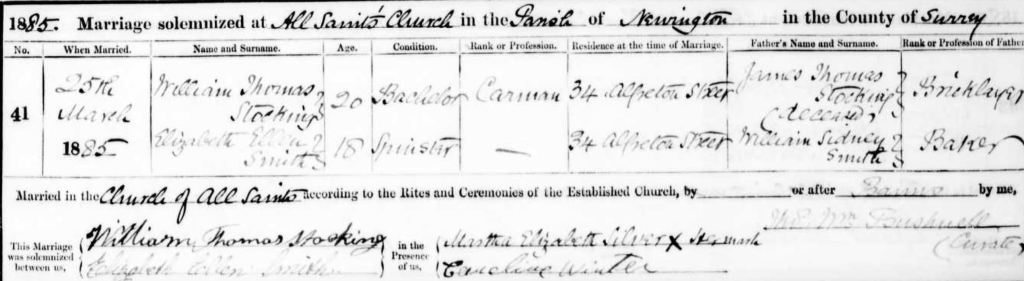 1885. Marriage solemnized at All Saints Church in the Parish of Newington in the County of Surrey
No. When Married. Name and Surname. Age. Condition. Rank or Profession. Residence at the time of Marriage. Father's Name and Surname. Rank or Profession of Father
41 25th March 1885
William Thomas Stocking 20 Bachelor Carman 34 Alfreton Street James Thomas Stocking (deceased) Bricklayer
Elizabeth Ellen Smith 18 Spinster — 34 Alfreton Street William Sidney Smith Baker
Married in the Church of All Saints according to the Rites and Ceremonies of the Established Church, by or after Banns by me,
Wm Bushnell
(Curate)
This Marriage was solemnized between us, William Thomas Stocking
Elizabeth Ellen Smith
in the Presence of us, Martha Elizabeth Silver X her mark
Caroline Winter